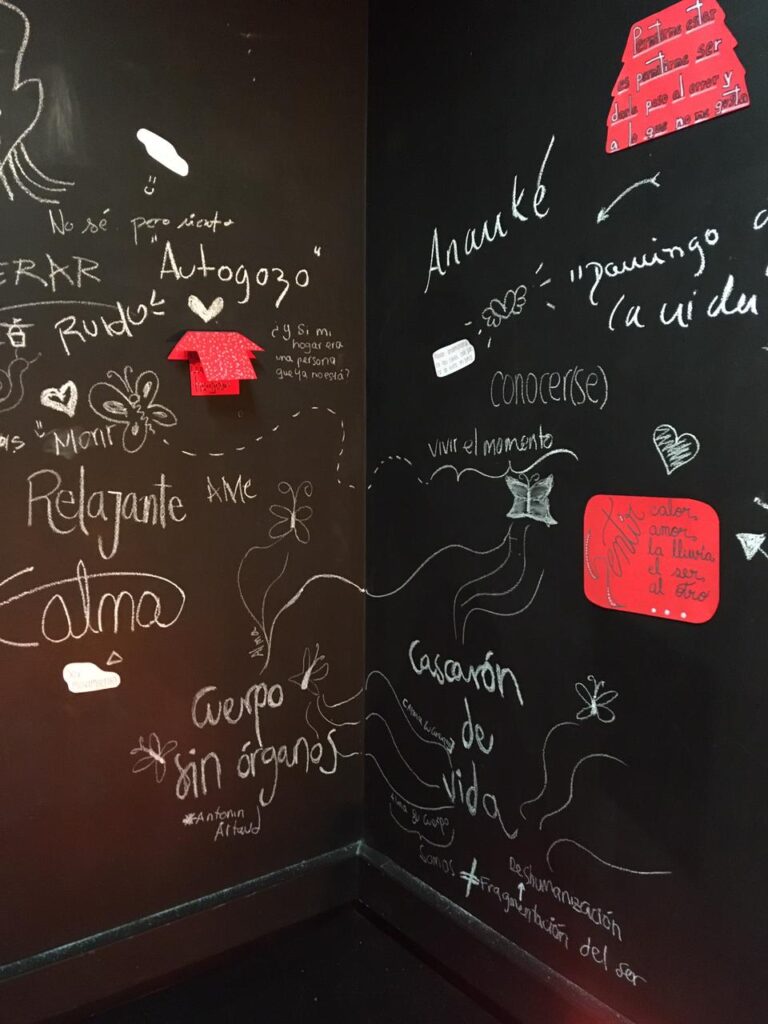 No sé pero siento
"Autogozo"
ERAR
Ruido
¿Y si mi
hogar era
una persona
que ya no está?
Morir
Relajante
AME
Calma
Alma
Cuerpo
sin órganos
*Antonin
Artaud
Permitirme estar
es permitirme ser
darle paso al error y
a lo que no me gusta
Ananké
"Domingo
la vida
conocer(se)
vivir el momento
Sentir
calor,
amor,
la lluvia
el ser
al otro
Cascarón
de
vida
Alma su cuerpo
Somos ≠ Fragmentación del ser
Deshumanización